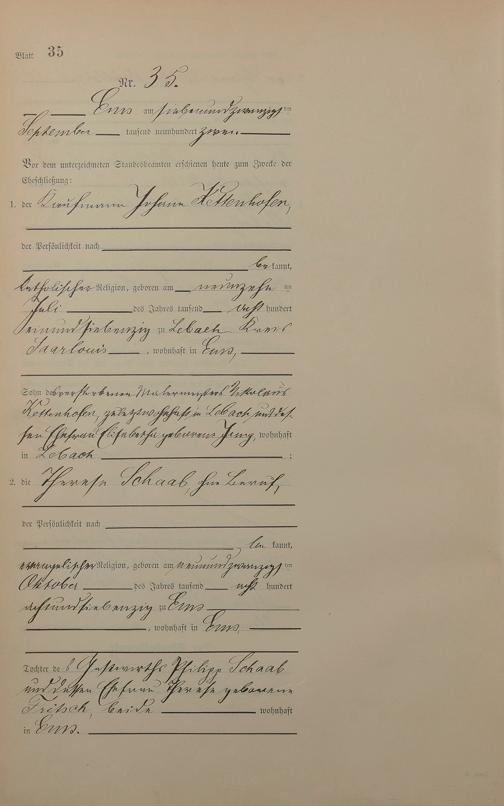 Blatt 35
Nr. 35.
Ems am siebenundzwanzigsten
September tausend neunhundert zwei
Vor dem unterzeichneten Standesbeamten erschienen heute zum Zwecke der
Eheschließung:
1. der Kaufmann Johann Kettenhofen,
der Persönlichkeit nach
be kannt,
katholischer Religion, geboren am neunzehn ten
Juli des Jahres tausend acht hundert
einundsiebenzig zu Lebach Kreis
Saarlouis, wohnhaft in Ems,
Sohn des verstorbenen Malermeisters Nikolaus
Kettenhofen, zuletzt wohnhaft in Lebach, und des
sen Ehefrau Elisabetha geborene Jung, wohnhaft
in Lebach ;
2. die Therese Schaab, ohne Beruf,
der Persönlichkeit nach
be kannt,
evangelischer Religion, geboren am neunundzwanzigsten
Oktober des Jahres tausend acht hundert
achtundsiebenzig zu Ems
, wohnhaft in Ems,
Tochter des Gastwirths Philipp Schaab
und dessen Ehefrau Therese geborene
Fritsch, beide wohnhaft
in Ems.